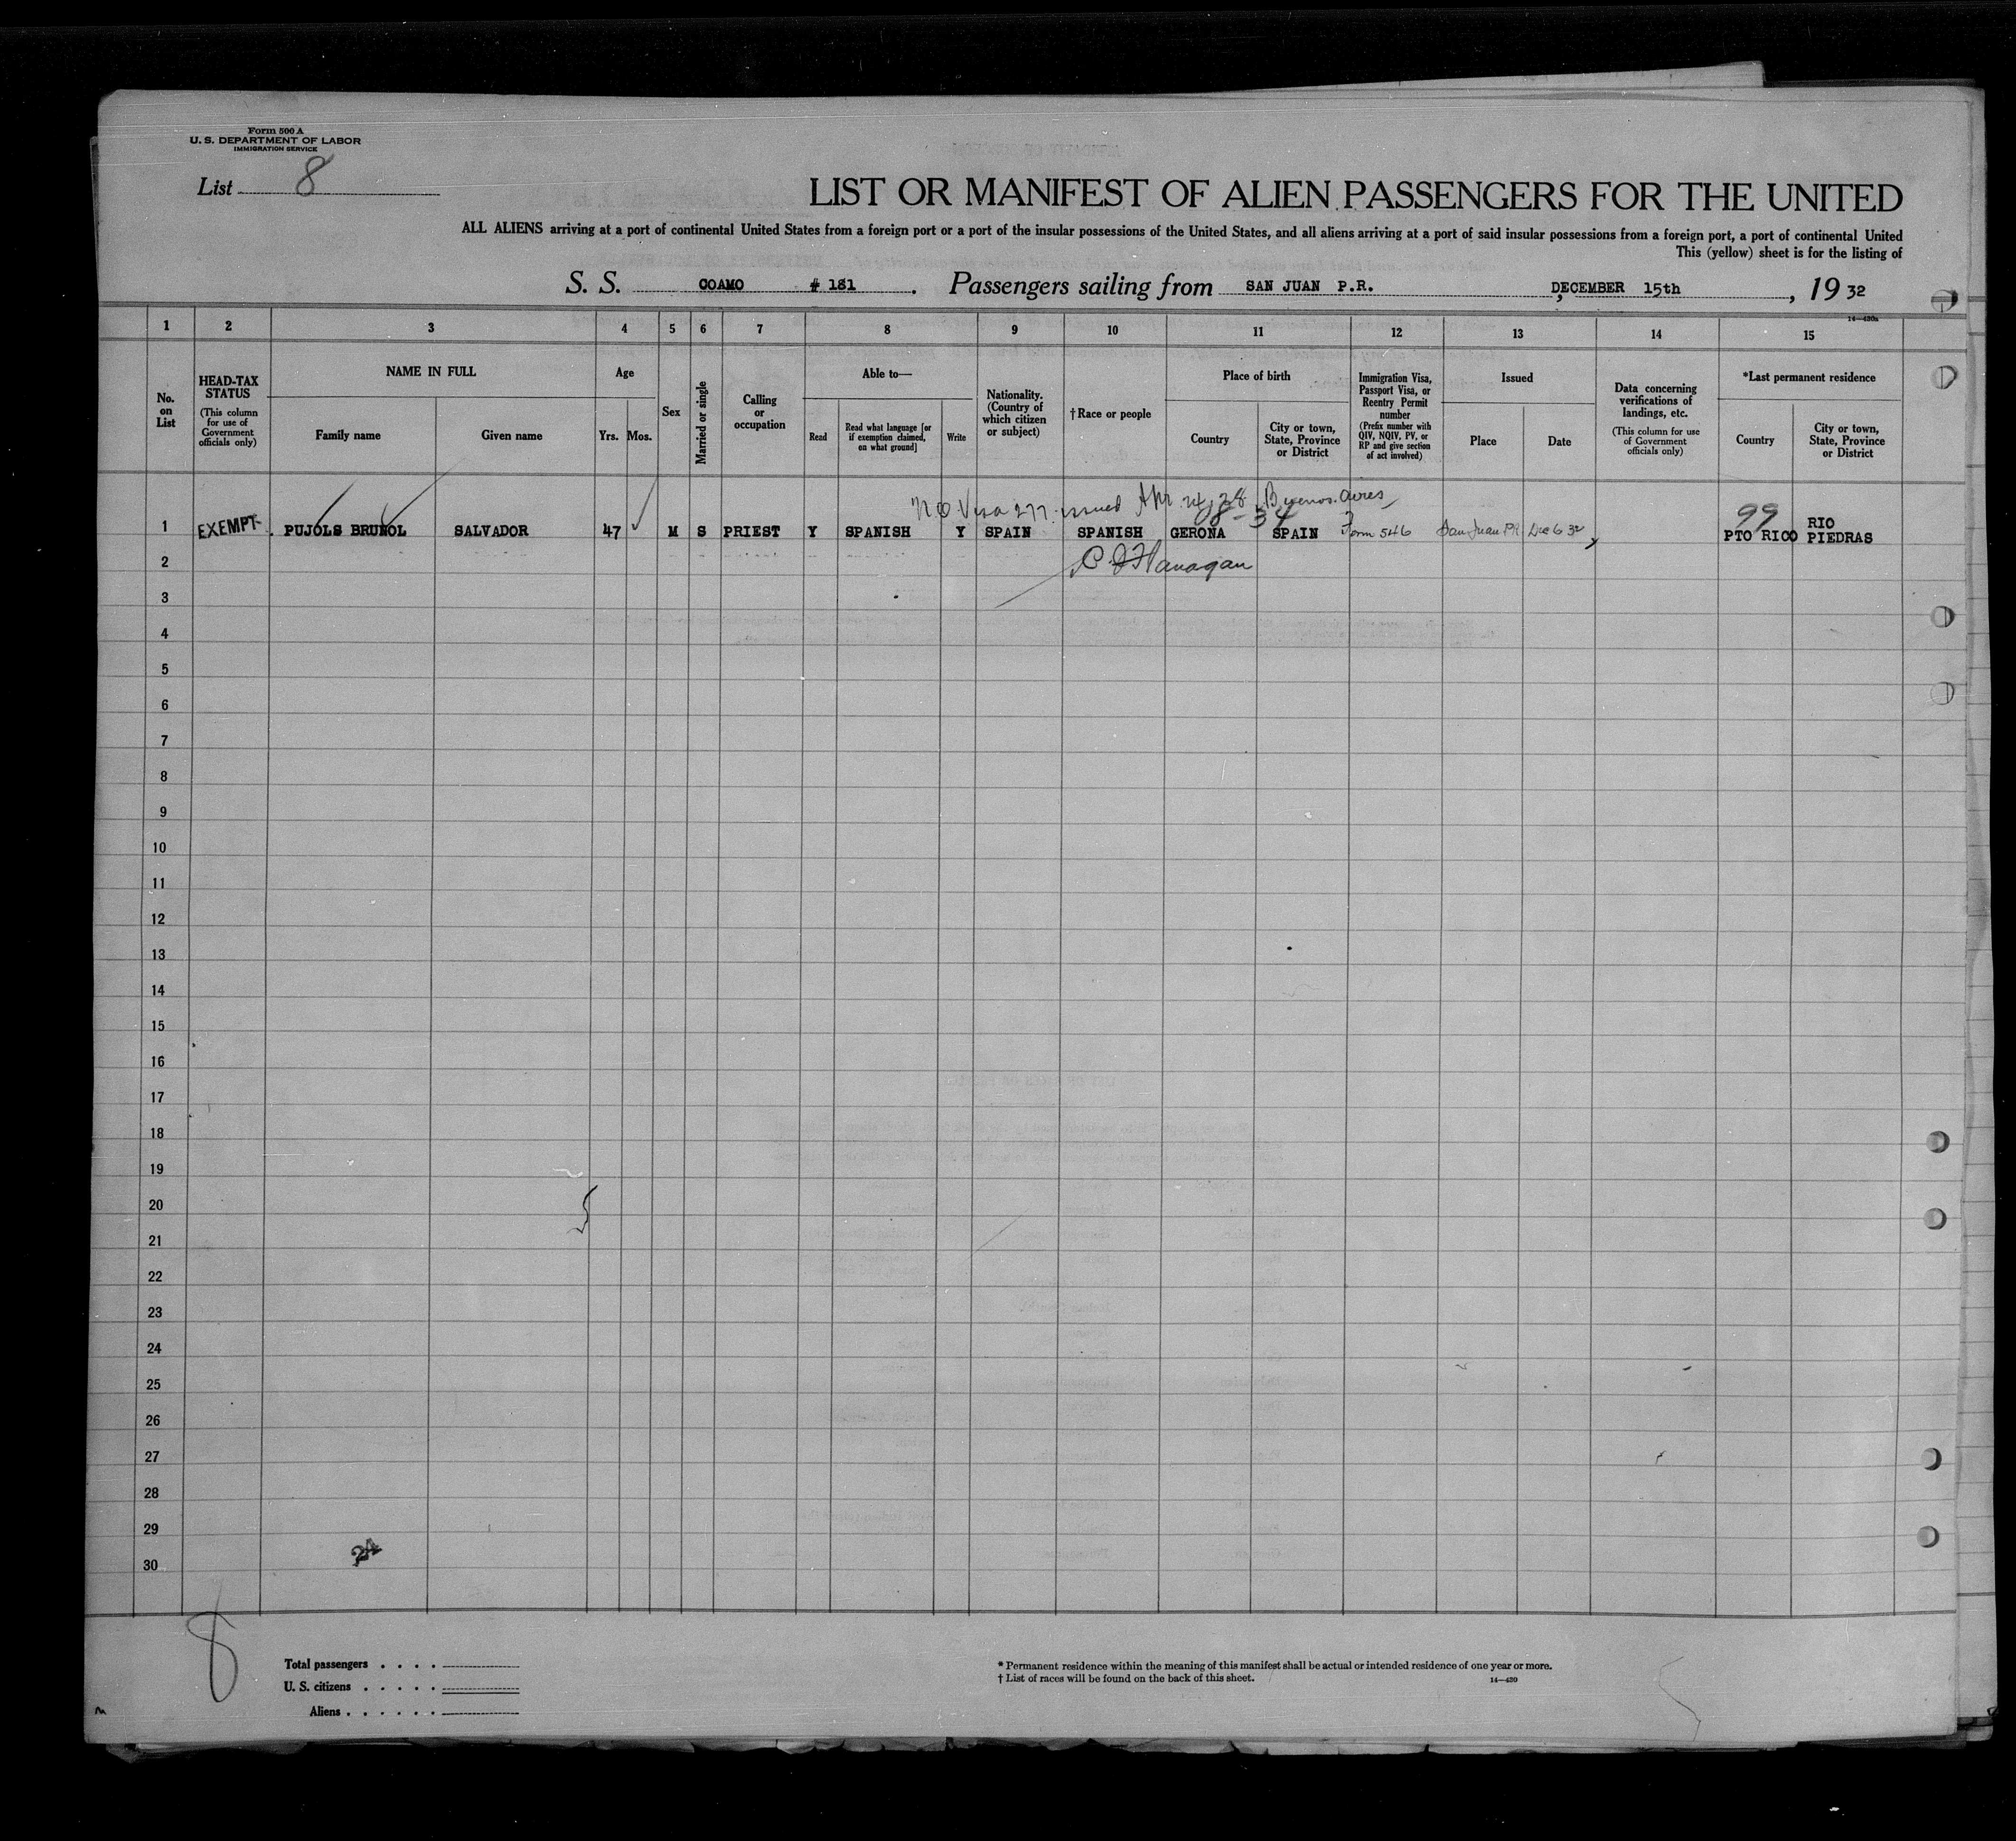 Form 500 A
U. S. DEPARTMENT OF LABOR
IMMIGRATION SERVICE
List 8
LIST OR MANIFEST OF ALIEN PASSENGERS FOR THE UNITED
ALL ALIENS arriving at a port of continental United States from a foreign port or a port of the insular possessions of the United States, and all aliens arriving at a port of said insular possessions from a foreign port, a port of continental United
This (yellow) sheet is for the listing of
S. S. COAMO # 181 . Passengers sailing from SAN JUAN P.R. , DECEMBER 15th , 19 32
14—430a
1 2 3 4 5 6 7 8 9 10 11 12 13 14 15
No. on List
HEAD-TAX STATUS
(This column for use of Government officials only)
NAME IN FULL
Family name
Given name
Age
Yrs. Mos.
Sex
Married or single
Calling or occupation
Able to—
Read
Read what language [or if exemption claimed, on what ground]
Write
Nationality. (Country of which citizen or subject)
† Race or people
Place of birth
Country
City or town, State, Province or District
Immigration Visa, Passport Visa, or Reentry Permit number
(Prefix number with QIV, NQIV, PV, or RP and give section of act involved)
Issued
Place
Date
Data concerning verifications of landings, etc.
(This column for use of Government officials only)
*Last permanent residence
Country
City or town, State, Province or District
Visa 277 issued Apr 24, 28 Buenos Aires
8-34
99
1 EXEMPT PUJOLS BRUNOL SALVADOR 47 M S PRIEST Y SPANISH Y SPAIN SPANISH GERONA SPAIN Form 546 San Juan PR Dec 6 32 PTO RICO RIO PIEDRAS
2
C J Flanagan
3
4
5
6
7
8
9
10
11
12
13
14
15
16
17
18
19
20
21
22
23
24
25
26
27
28
29
30
24
8
Total passengers . . . .
U. S. citizens . . . . .
Aliens . . . . . .
* Permanent residence within the meaning of this manifest shall be actual or intended residence of one year or more.
† List of races will be found on the back of this sheet.
14—430